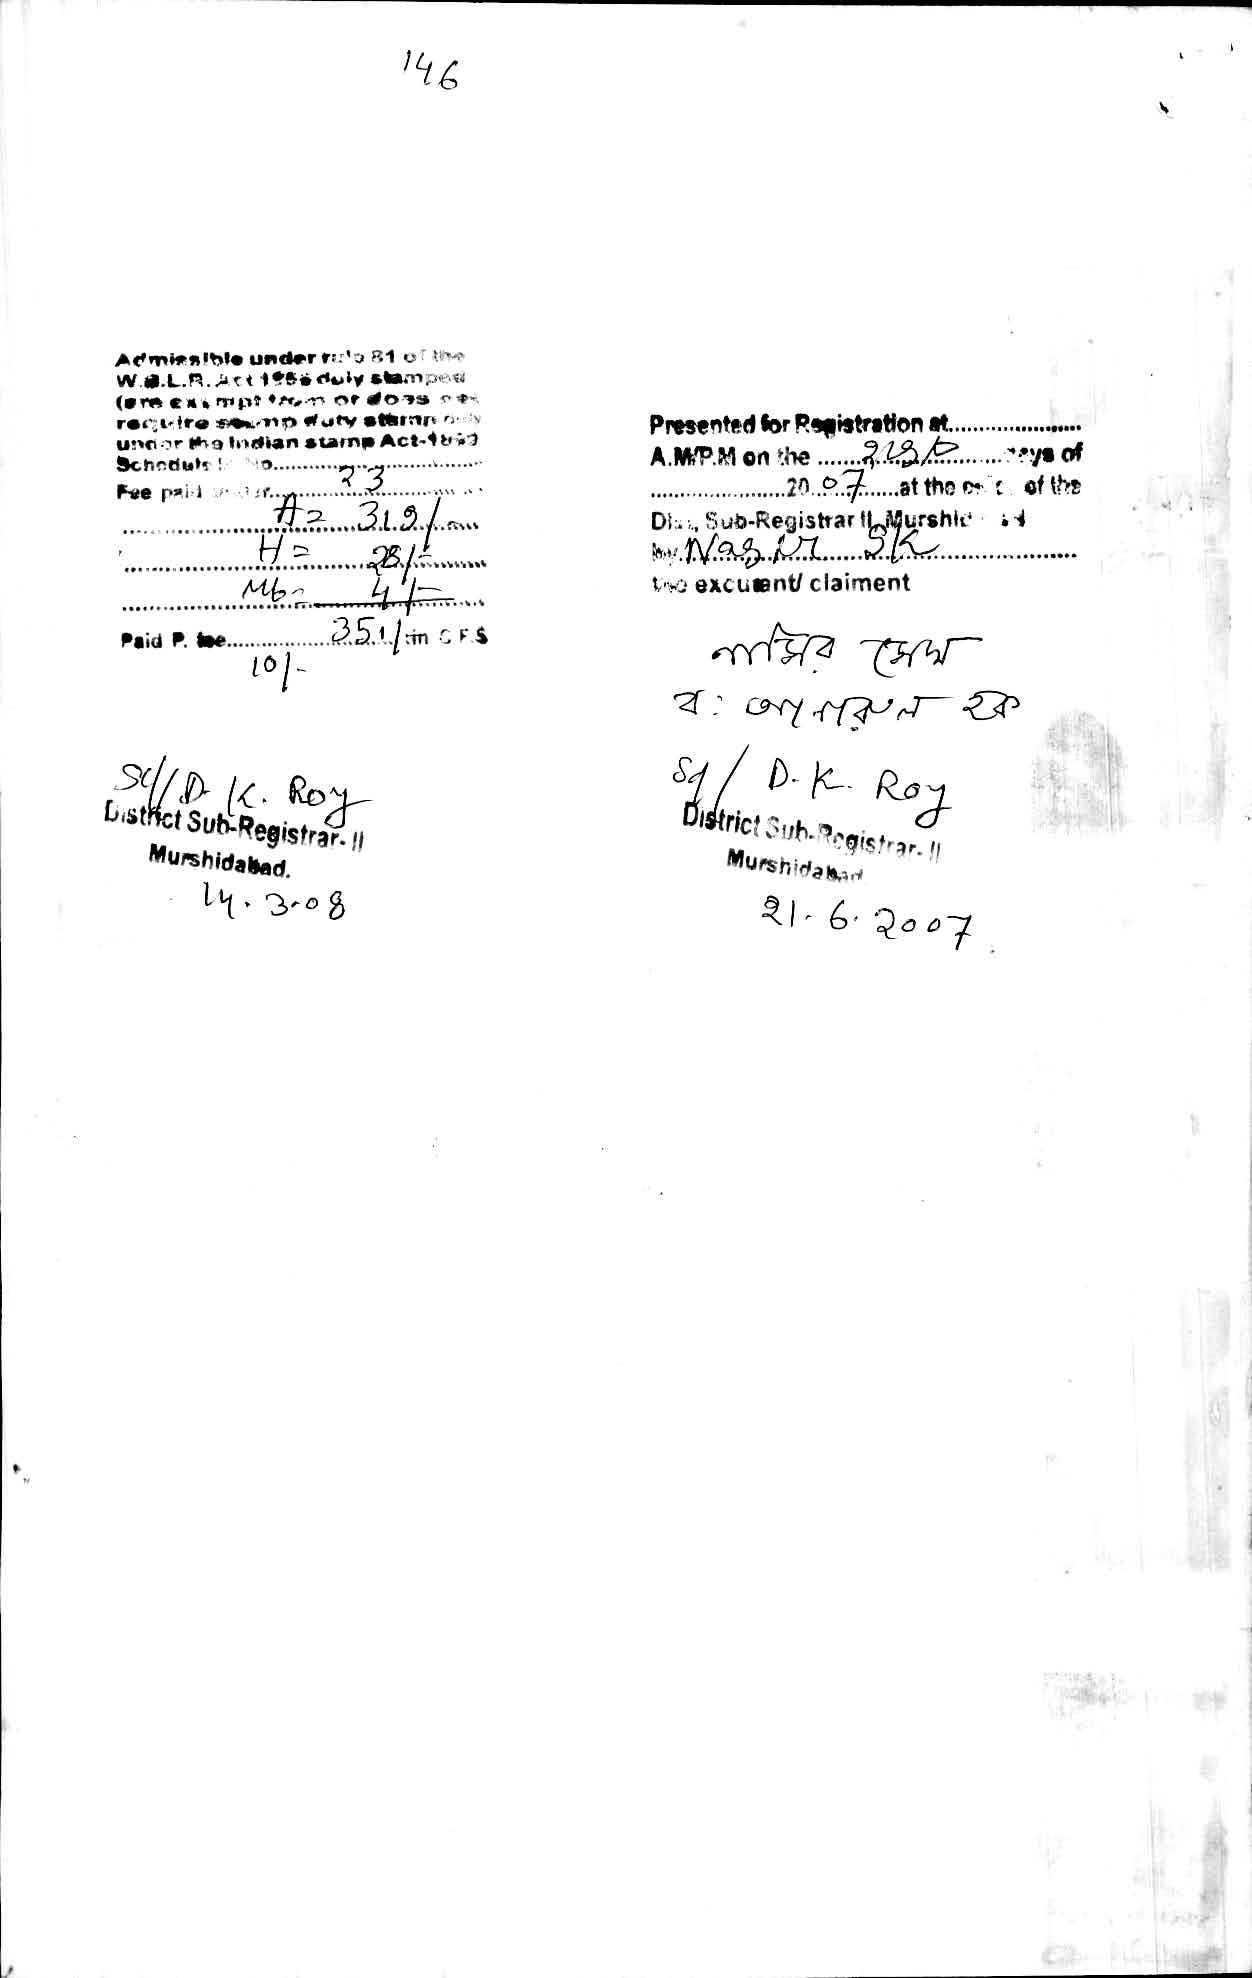 146
Admissible under rule 81 of the
W.B.L.R. Act 1956 duly stamped
(are exempt from or does not
require stamp duty stamp duty
under the Indian stamp Act-1899
Schedule I. No....................
23
Fee paid under....................
A = 319/-
H = 28/-
Mb = 4/-
Paid P. fee....................351/- in C.F.S
10/-
Sd/ D. K. Roy
District Sub-Registrar-II
Murshidabad.
14.3.08
Presented for Registration at....................
A.M/P.M on the ........21st............days of
....................2007........at the office of the
Dist. Sub-Registrar II, Murshidabad
by Nasir Sk....................
the excutent/ claiment
নাসির সেখ
ব: আনারুল হক
Sd/ D. K. Roy
District Sub-Registrar-II
Murshidabad
21.6.2007